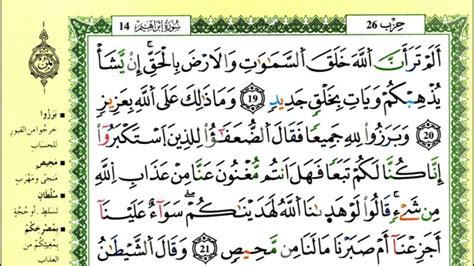 حِزْب 26
سُورَةُ إِبْرَاهِيم 14
أَلَمْ تَرَ أَنَّ اَللَّهَ خَلَقَ اَلسَّمَٰوَٰتِ وَالَارْضَ بِالْحَقِّ إِنْ يَّشَأْ
يُذْهِبْكُمْ وَيَاتِ بِخَلْقٍ جَدِيدٍ 19 وَمَا ذَٰلِكَ عَلَى اَللَّهِ بِعَزِيزٍ
20 وَبَرَزُواْ لِلهِ جَمِيعاً فَقَالَ اَلضُّعَفَٰٓؤُاْ لِلذِينَ اَسْتَكْبَرُوٓاْ
إِنَّا كُنَّا لَكُمْ تَبَعاً فَهَلَ اَنتُم مُّغْنُونَ عَنَّا مِنْ عَذَابِ اِللَّهِ
مِن شَيْءٍ قَالُواْ لَوْ هَدَىٰنَا اَللَّهُ لَهَدَيْنَٰكُمْ سَوَآءٌ عَلَيْنَآ
أَجَزِعْنَآ أَمْ صَبَرْنَا مَا لَنَا مِن مَّحِيصٍ 21 وَقَالَ اَلشَّيْطَٰنُ
بَرَزُوا
خرجوا من القبور
للحساب
مَحِيصٍ
منجى ومهرب
سُلْطَانٍ
تسلط، أو حجة
بِمُصْرِخِكُمْ
بمغيثكم من
العذاب